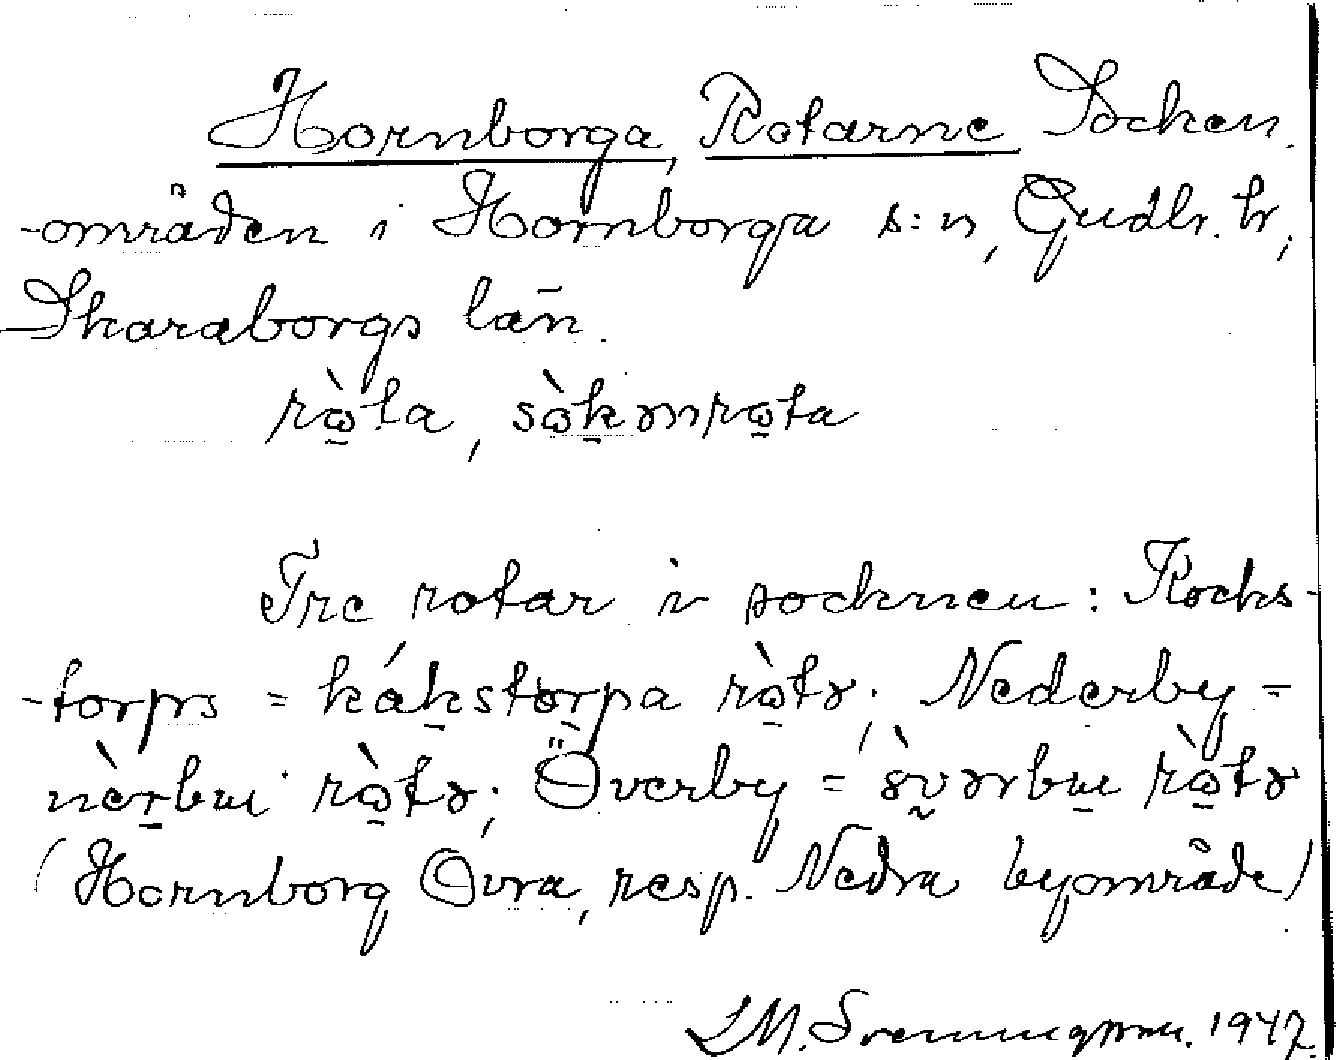 Hornborga, Rotarne Socken-
-områden i Hornborga s:n, Gudh. hr,
Skaraborgs län.
ròta, sòkənrota
Tre rotar i socknen: Kocks-
-torps = kákstorpa ròtə; Nederby =
nèrbɯ ròtə; Överby = òvərbɯ ròtə
(Hornborg Övra, resp. Nedra byområde)
S.M. Svenningson. 1947.